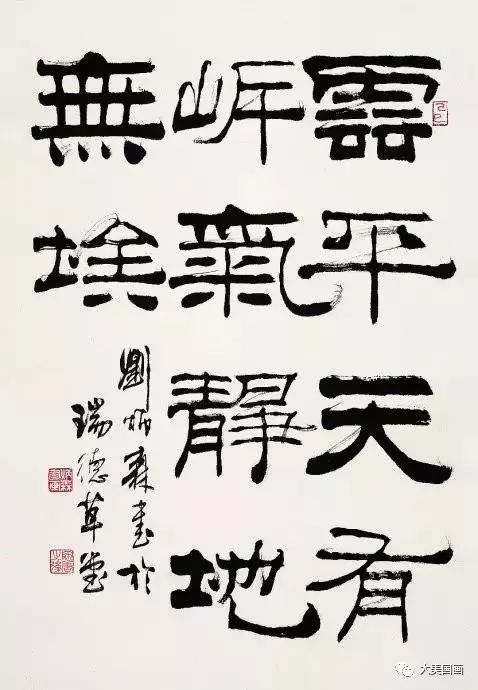 雲平天有
岸氣靜地
無埃
劉炳森書於
瑞德草堂
大美国画